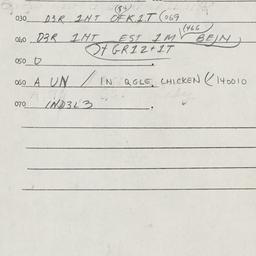 (84)
030 D3R 1HT OFK1T (069
(466
040 D3R 1HT EST 1M BEIN
+ GR12+1T
050 0
060 A UN / IN QGLE, CHICKEN (140010
070 IND3L3 .